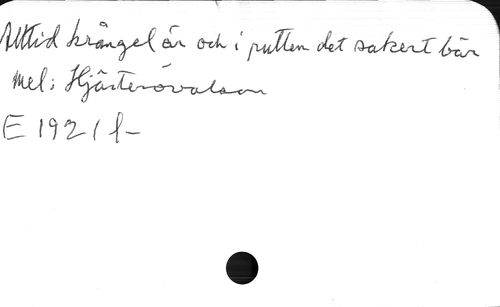 Alltid krångel är och i putten det sakert bär
mel: Hjärterövalsen
E 1921 f-